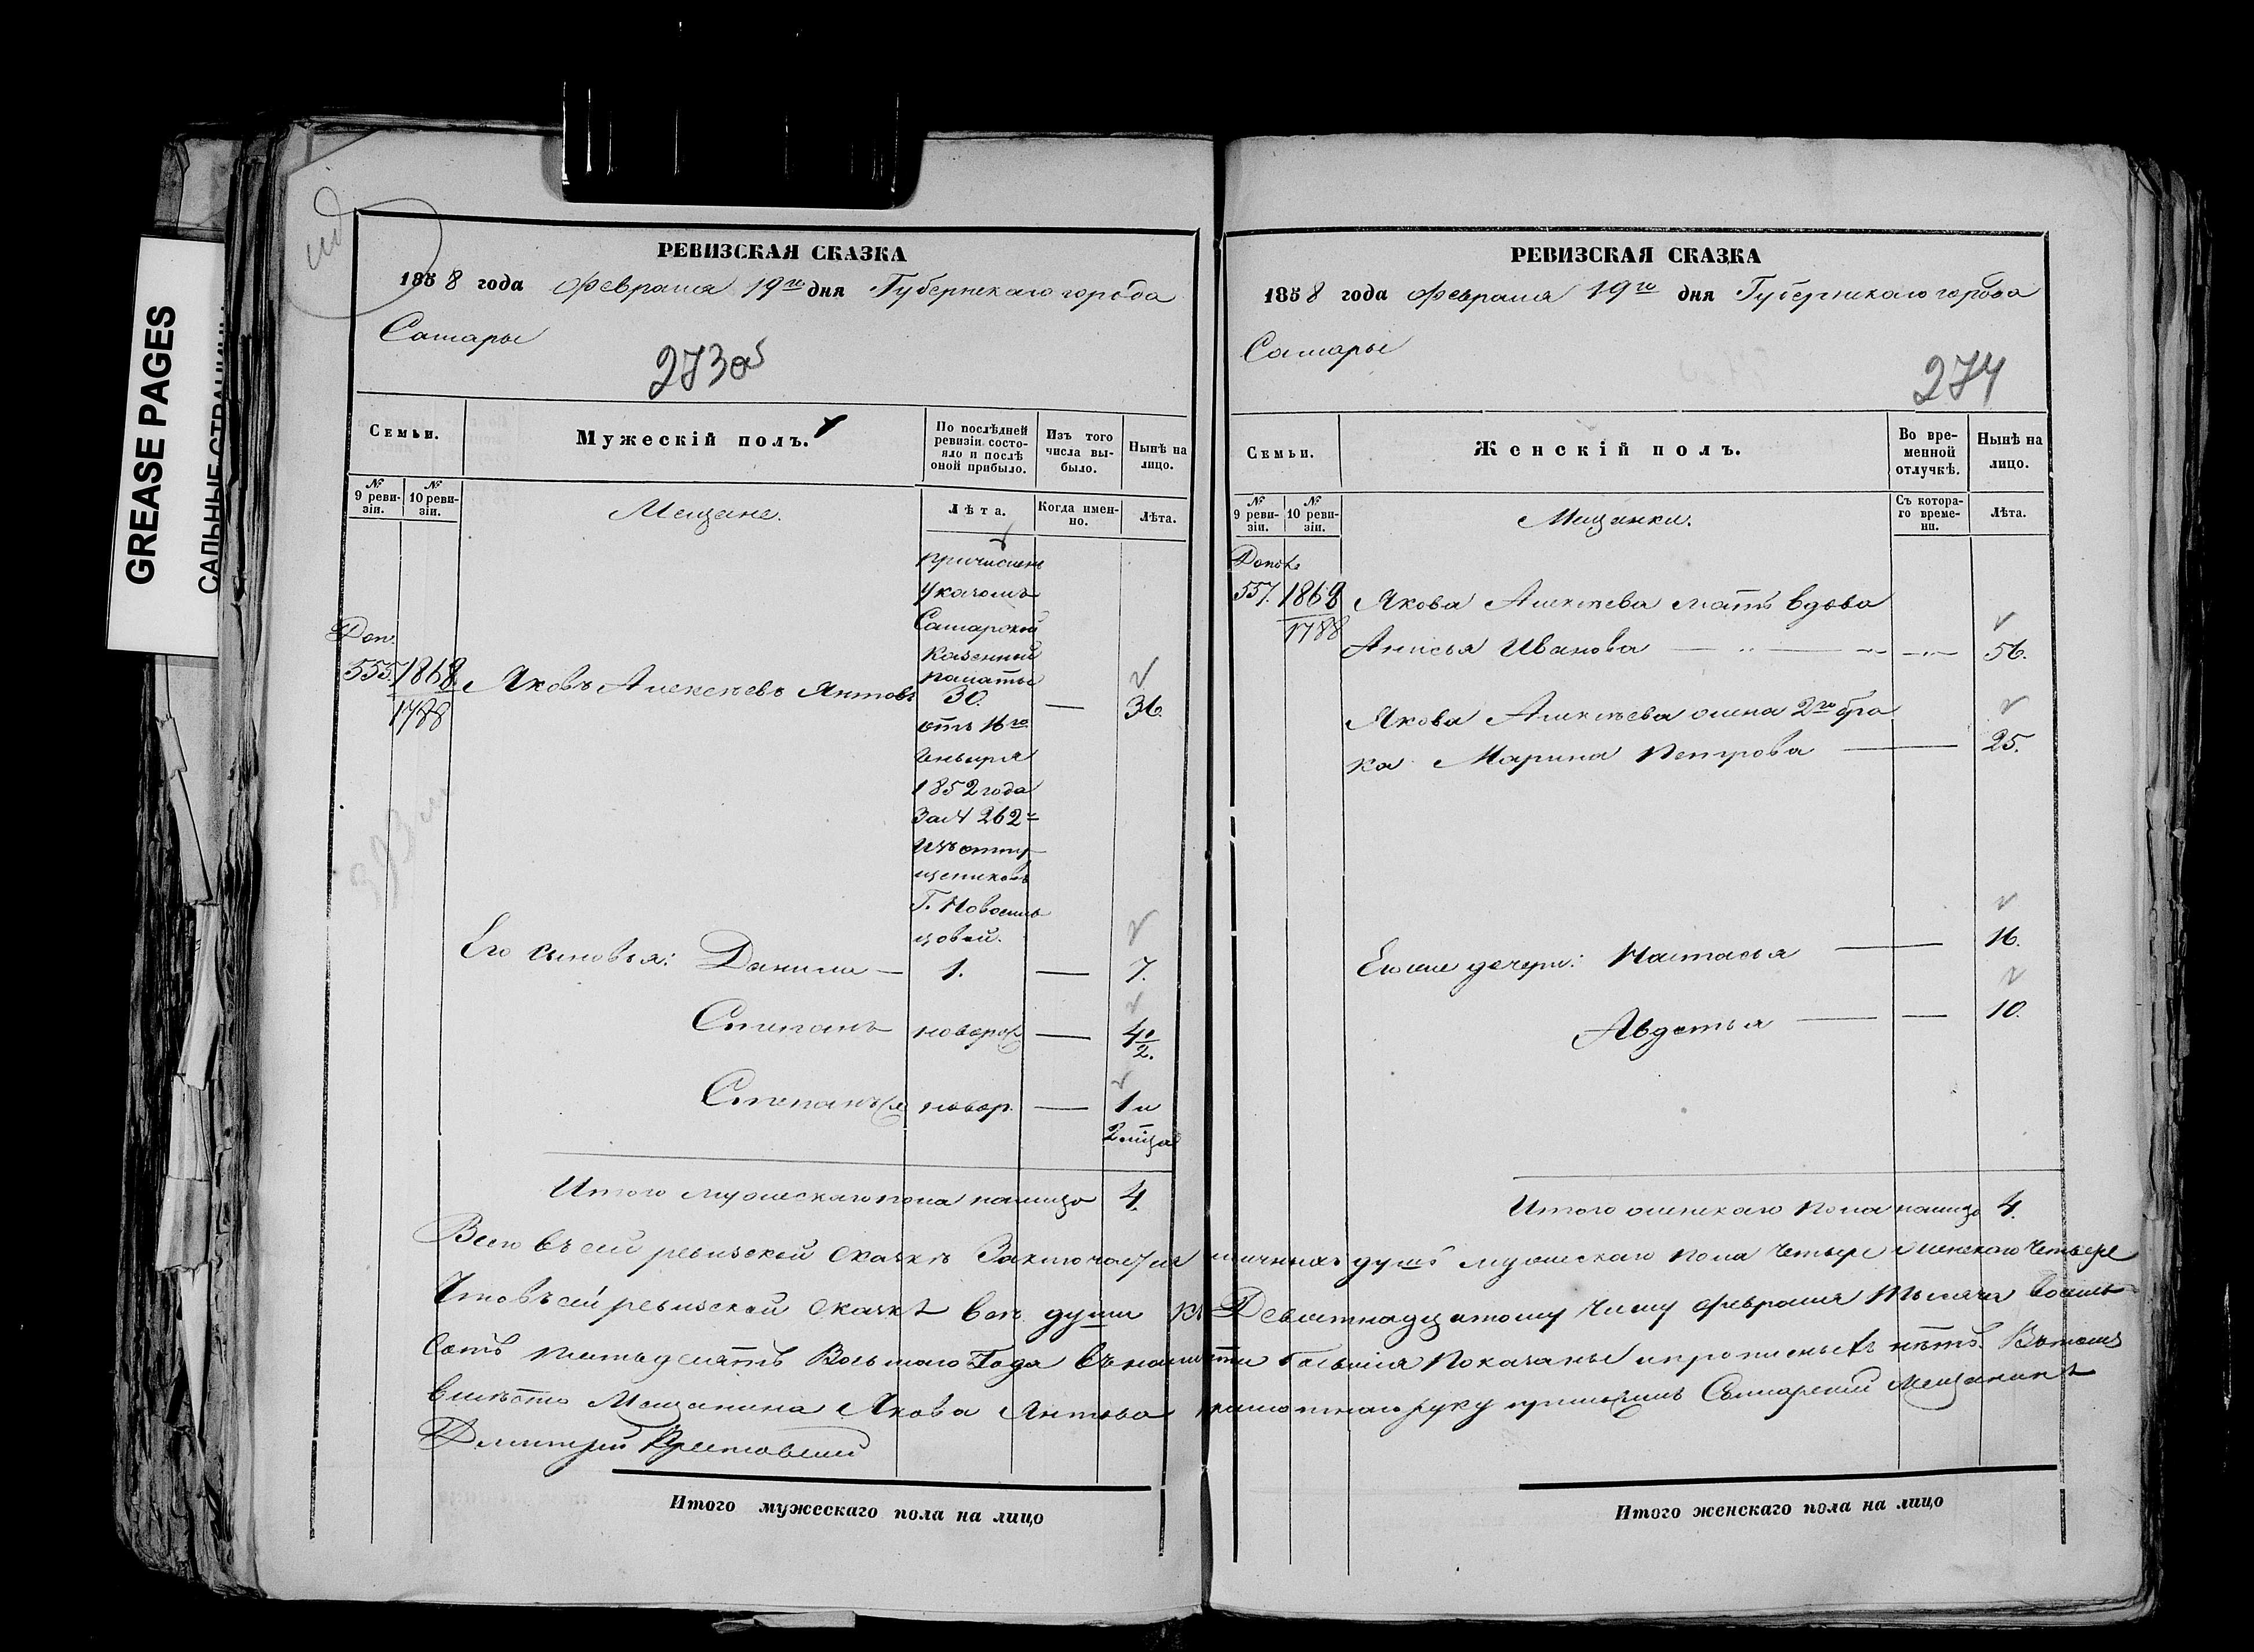 GREASE PAGES
САЛЬНЫЕ СТРАНИЦЫ
РЕВИЗСКАЯ СКАЗКА
1858 года Февраля 19го дня Губернскаго города
Самары
273об
Семьи.
Мужескій полъ.
По послѣдней ревизіи состояло и послѣ оной прибыло.
Изъ того числа выбыло.
Нынѣ на лицо.
№ 9 ревизіи.
№ 10 ревизіи.
Мещане.
Лѣта.
Когда именно.
Лѣта.
причисленъ
Указомъ
Самарской
Казенной
палаты
Доп.
555. 1868 Яковъ Алексѣевъ Антовъ 30. — 36.
1788
отъ 16го
Генваря
1852 года
За № 262
Изъ отпу
щенниковъ
Г. Новосиль
цовой.
Его сыновья: Данила — 1. — 7.
Степанъ новорож — 4 1/2.
Степанъ новор. — 1 и
2 мѣца
Итого мужескаго пола налицо 4.
РЕВИЗСКАЯ СКАЗКА
1858 года Февраля 19го дня Губернскаго города
Самары
274
Семьи.
Женскій полъ.
Во временной отлучкѣ.
Нынѣ на лицо.
№ 9 ревизіи.
№ 10 ревизіи.
Мещанки.
Съ котораго времени.
Лѣта.
Допол.
557. 1868 Якова Алексѣева мать вдова
1788 Анисья Иванова — — 56.
Якова Алексѣева жена 2го бра
ка Марина Петрова — 25.
Его же дочери: Настасья — 16.
Авдотья — — 10.
Итого женскаго пола налицо 4.
Всего въ сей ревизской сказкѣ Заключается наличныхъ душъ мужескаго пола четыре женскаго четыре
Что въ сей ревизской сказкѣ всѣ души къ Девятнадцатому числу Февраля Тысяча восемь
сотъ пятьдесятъ Восьмаго Года въ наличности бывшія показаны и прописныхъ нѣтъ. Въ томъ
вмѣсто Мещанина Якова Антова руку приложилъ Самарский Мещанинъ
Дмитрий
Итого мужескаго пола на лицо
Итого женскаго пола на лицо